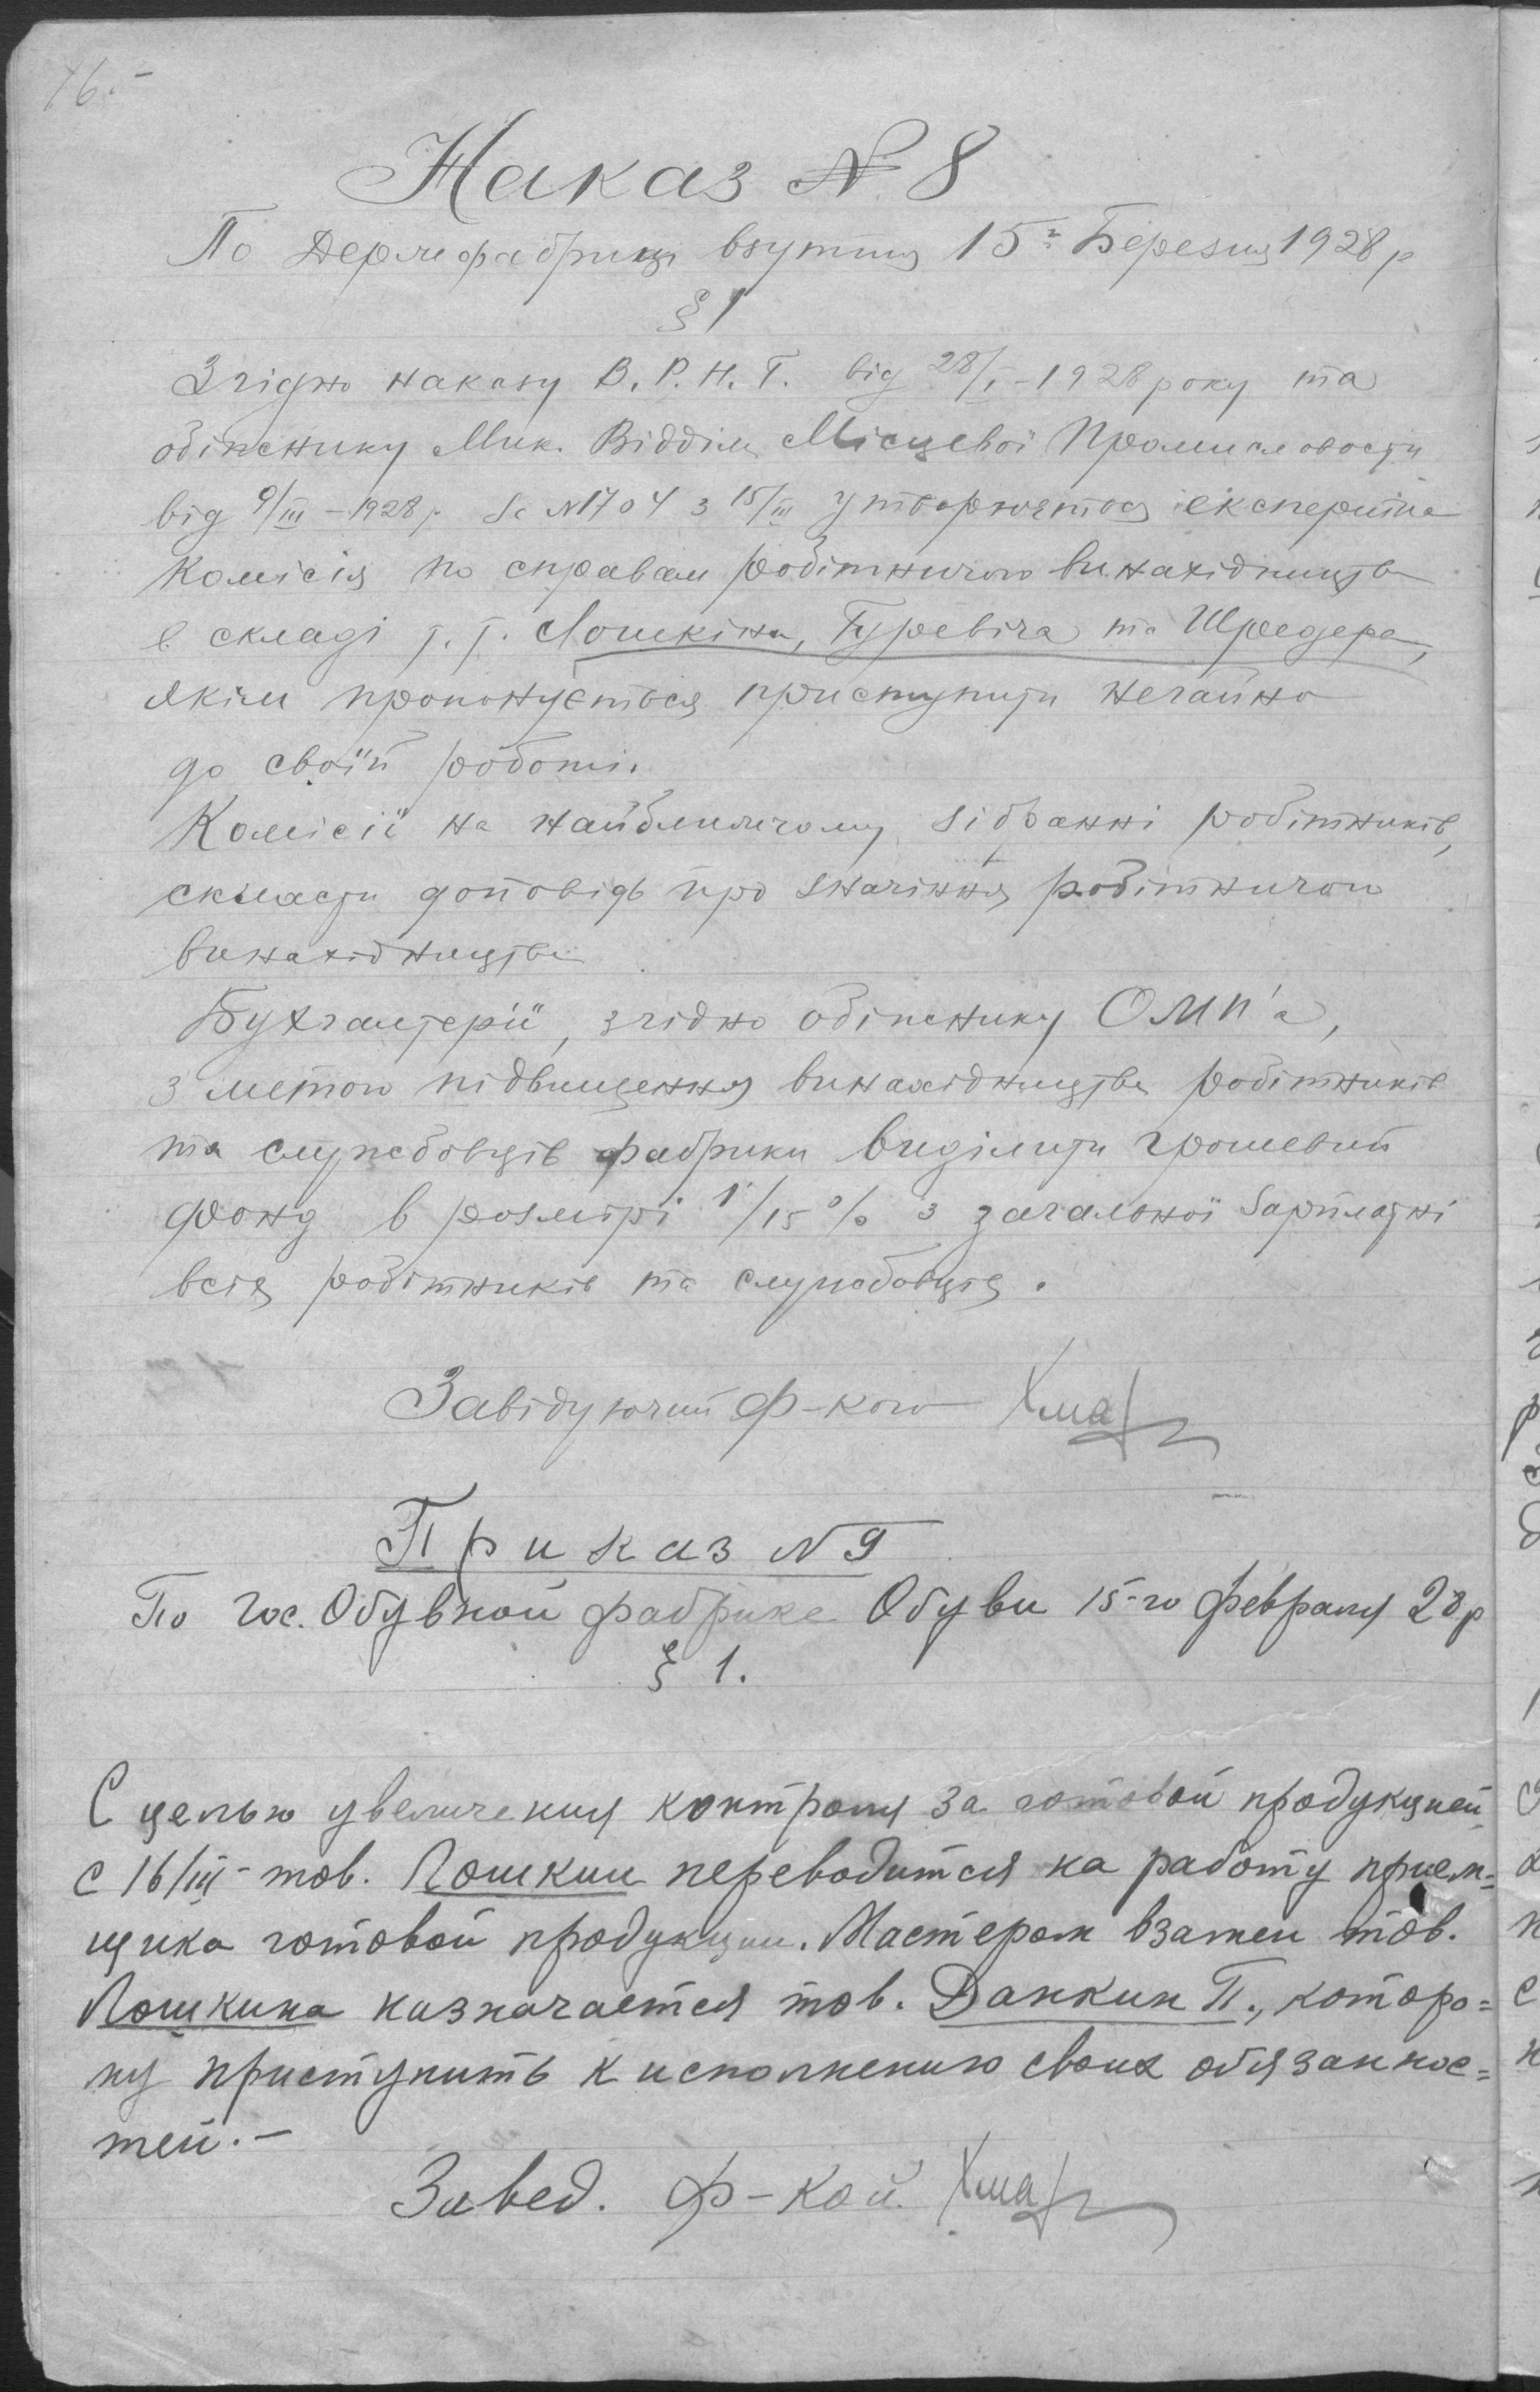 16.-
Наказ № 8
По Держфабриці взуття 15го Березня 1928 р
§ 1
Згідно наказу В.Р.Н.Г. від 28/I-1928 року та
обіжнику Мик. Відділу Місцевої Промисловости
від 9/III-1928 р. за №1704 з 15/III утворюется експертна
Комісія по справам робітничого винахідництва
в складі т.т. Лошкіна, Гуревіча та Шредера,
якім пропонується приступити негайно
до своїй роботі.
Комісії на найближчому зібранні робітників,
скласти доповідь про значіння робітничого
винахідництва
Бухгалтерії, згідно обіжнику ОМП'а,
з метою підвищення винахідництва робітників
та службовців фабрики виділити грошевий
фонд в розмірі 1/15 % з загальної зарплатні
всіх робітників та службовців.
Завідуючий Ф-кою
Приказ № 9
По Гос. Обувной фабрике Обуви 15-го февраля 28 р
§ 1.
С целью увеличения контроля за готовой продукцией
с 16/III- тов. Лошкин переводится на работу прием=
щика готовой продукции. Мастером взамен тов.
Лошкина назначается тов. Данкин П., которо=
му приступить к исполнению своих обязаннос=
тей.-
Завед. Ф-кой